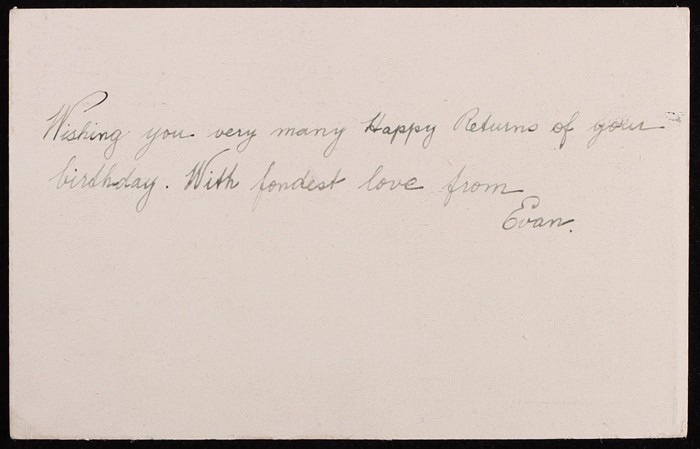 Wishing you very many Happy Returns of your
birthday. With fondest love from
Evan.